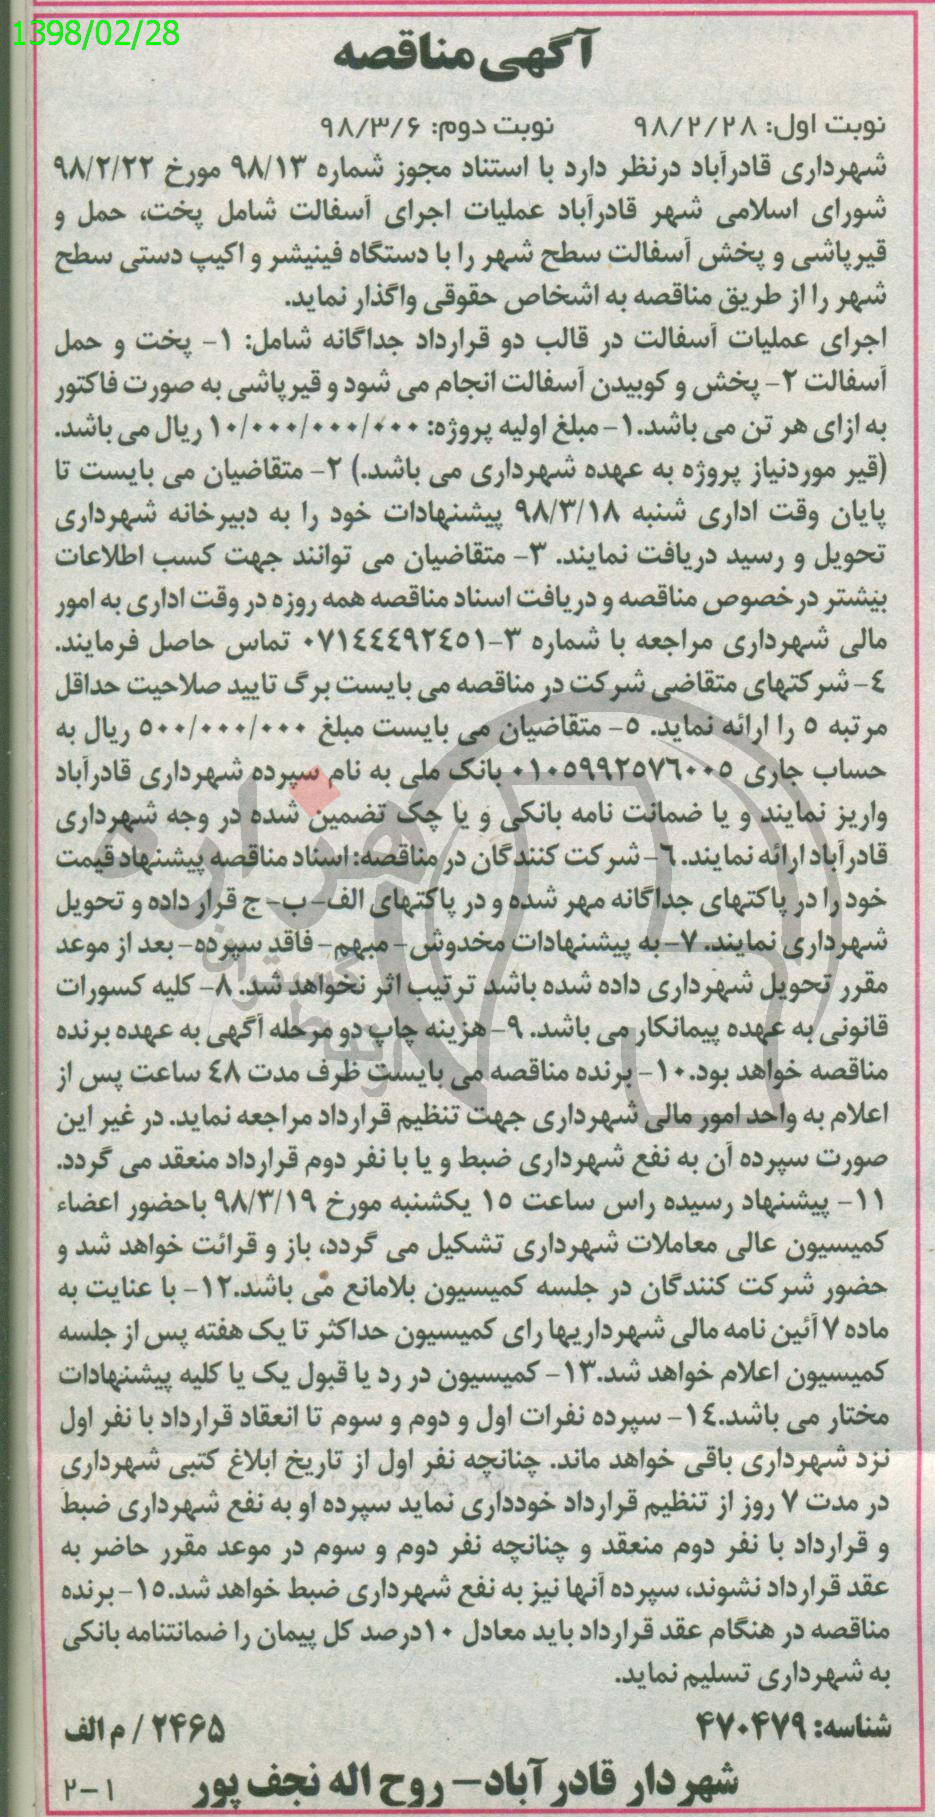 1398/02/28
آگهی مناقصه
نوبت اول: ۹۸/۲/۲۸ نوبت دوم: ۹۸/۳/۶
شهرداری قادرآباد درنظر دارد با استناد مجوز شماره ۹۸/۱۳ مورخ ۹۸/۲/۲۲
شورای اسلامی شهر قادرآباد عملیات اجرای آسفالت شامل پخت، حمل و
قیرپاشی و پخش آسفالت سطح شهر را با دستگاه فینیشر و اکیپ دستی سطح
شهر را از طریق مناقصه به اشخاص حقوقی واگذار نماید.
اجرای عملیات آسفالت در قالب دو قرارداد جداگانه شامل: ۱- پخت و حمل
آسفالت ۲- پخش و کوبیدن آسفالت انجام می شود و قیرپاشی به صورت فاکتور
به ازای هر تن می باشد.۱- مبلغ اولیه پروژه: ۱۰/۰۰۰/۰۰۰/۰۰۰ ریال می باشد.
(قیر موردنیاز پروژه به عهده شهرداری می باشد.) ۲- متقاضیان می بایست تا
پایان وقت اداری شنبه ۹۸/۳/۱۸ پیشنهادات خود را به دبیرخانه شهرداری
تحویل و رسید دریافت نمایند. ۳- متقاضیان می توانند جهت کسب اطلاعات
بیشتر درخصوص مناقصه و دریافت اسناد مناقصه همه روزه در وقت اداری به امور
مالی شهرداری مراجعه با شماره ۳-۰۷۱٤٤٤۹۲٤۵۱ تماس حاصل فرمایند.
٤- شرکتهای متقاضی شرکت در مناقصه می بایست برگ تایید صلاحیت حداقل
مرتبه ۵ را ارائه نماید. ۵- متقاضیان می بایست مبلغ ۵۰۰/۰۰۰/۰۰۰ ریال به
حساب جاری ۰۱۰۵۹۹۲۵۷٦۰۰۵ بانک ملی به نام سپرده شهرداری قادرآباد
واریز نمایند و یا ضمانت نامه بانکی و یا چک تضمین شده در وجه شهرداری
قادرآباد ارائه نمایند. ٦- شرکت کنندگان در مناقصه: اسناد مناقصه پیشنهاد قیمت
خود را در پاکتهای جداگانه مهر شده و در پاکتهای الف- ب- ج قرار داده و تحویل
شهرداری نمایند. ۷- به پیشنهادات مخدوش- مبهم- فاقد سپرده- بعد از موعد
مقرر تحویل شهرداری داده شده باشد ترتیب اثر نخواهد شد. ۸- کلیه کسورات
قانونی به عهده پیمانکار می باشد. ۹- هزینه چاپ دو مرحله آگهی به عهده برنده
مناقصه خواهد بود.۱۰- برنده مناقصه می بایست ظرف مدت ٤۸ ساعت پس از
اعلام به واحد امور مالی شهرداری جهت تنظیم قرارداد مراجعه نماید. در غیر این
صورت سپرده آن به نفع شهرداری ضبط و یا با نفر دوم قرارداد منعقد می گردد.
۱۱- پیشنهاد رسیده راس ساعت ۱۵ یکشنبه مورخ ۹۸/۳/۱۹ باحضور اعضاء
کمیسیون عالی معاملات شهرداری تشکیل می گردد، باز و قرائت خواهد شد و
حضور شرکت کنندگان در جلسه کمیسیون بلامانع می باشد.۱۲- با عنایت به
ماده ۷ آئین نامه مالی شهرداریها رای کمیسیون حداکثر تا یک هفته پس از جلسه
کمیسیون اعلام خواهد شد.۱۳- کمیسیون در رد یا قبول یک یا کلیه پیشنهادات
مختار می باشد.۱٤- سپرده نفرات اول و دوم و سوم تا انعقاد قرارداد با نفر اول
نزد شهرداری باقی خواهد ماند. چنانچه نفر اول از تاریخ ابلاغ کتبی شهرداری
در مدت ۷ روز از تنظیم قرارداد خودداری نماید سپرده او به نفع شهرداری ضبط
و قرارداد با نفر دوم منعقد و چنانچه نفر دوم و سوم در موعد مقرر حاضر به
عقد قرارداد نشوند، سپرده آنها نیز به نفع شهرداری ضبط خواهد شد.۱۵- برنده
مناقصه در هنگام عقد قرارداد باید معادل ۱۰درصد کل پیمان را ضمانتنامه بانکی
به شهرداری تسلیم نماید.
شناسه: ۴۷۰۴۷۹ ۲۴۶۵ / م الف
شهردار قادر آباد- روح اله نجف پور ۱-۲